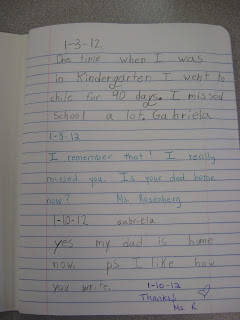 1-3-12
One time when I was
in Kindergarten I went to
chile for 90 days. I missed
School a lot. Gabriela
1-3-12
I remember that! I really
missed you. Is your dad home
now? Ms. Rosenberg
1-10-12 Gabriela
yes my dad is home
now. ps I like how
you write. 1-10-12
Thanks!
Ms R